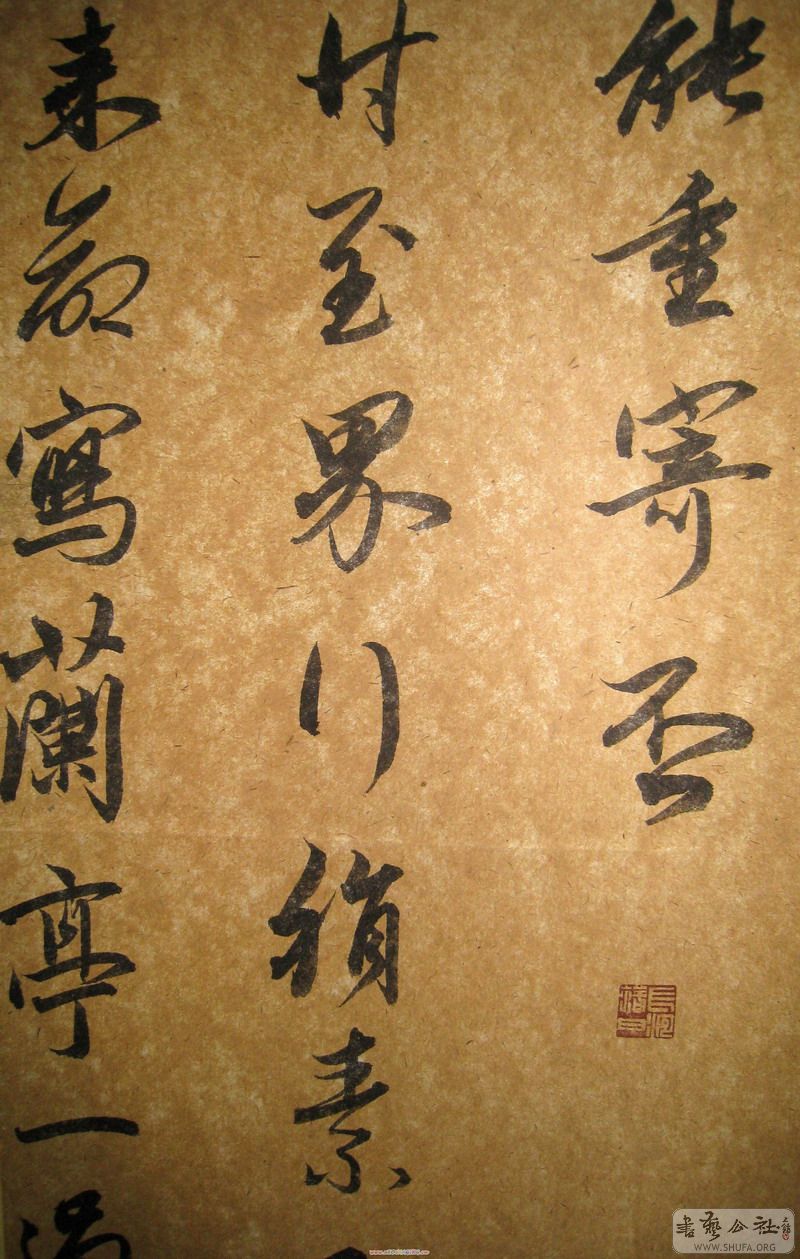 能重寄否
付至界行絹素
来命寫蘭亭一
書藝公社
WWW.SHUFA.ORG